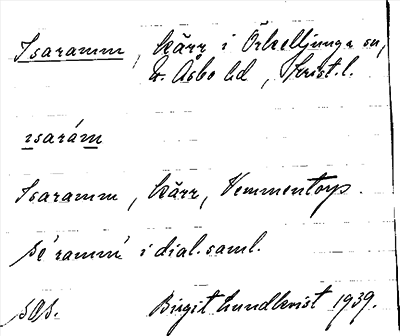 Isaramm, kärr i Örkelljunga sn,
N. Åsbo hd, Krist. l.
isarám
Isaramm, kärr, Vemmentorp.
se ramm i dial. saml.
SOS. Birgit Lundkvist 1939.